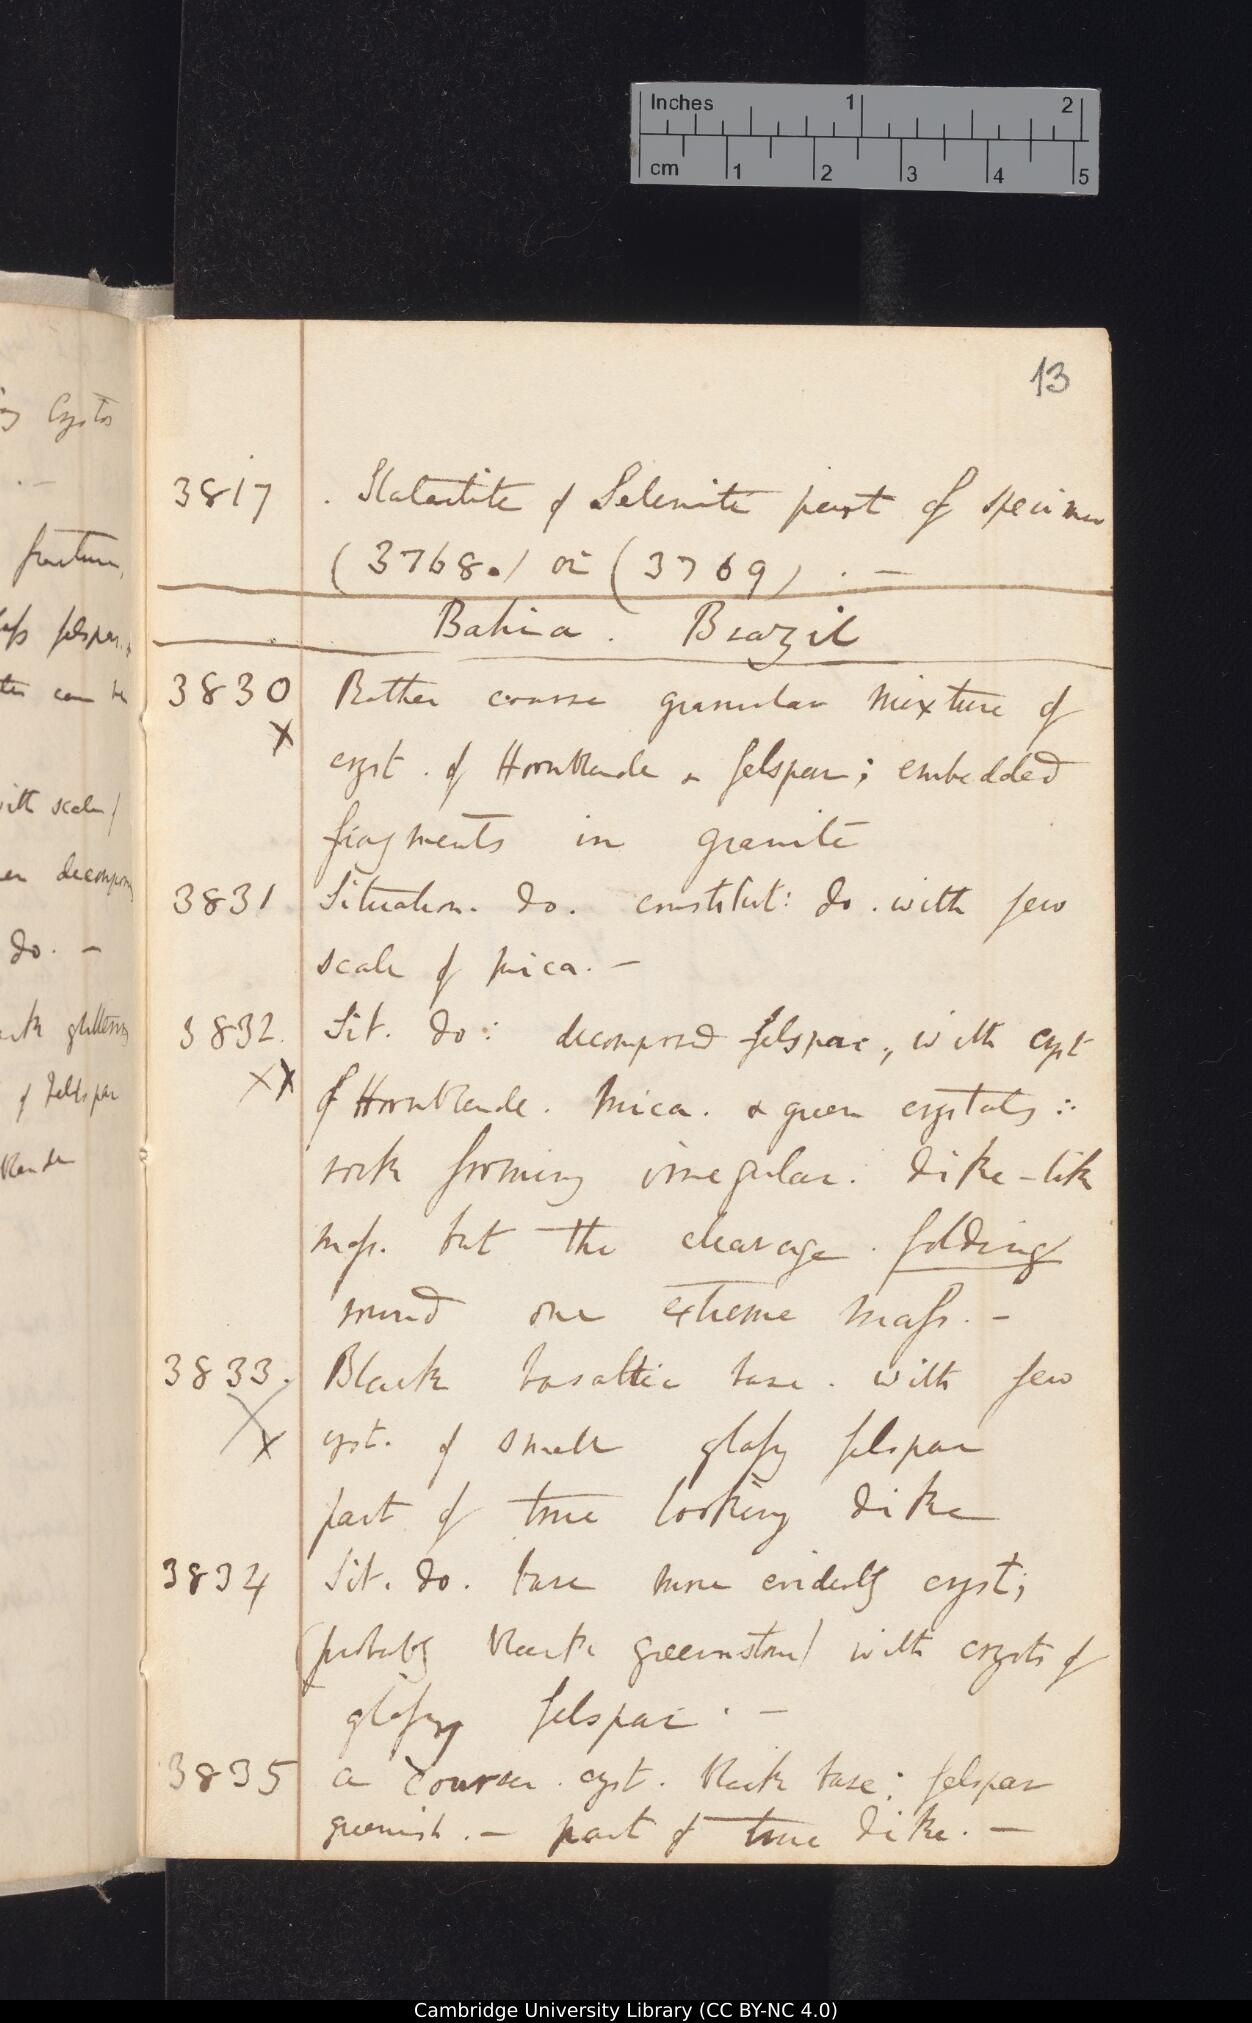 Inches 1 2
cm 1 2 3 4 5
13
3817 . Stalactite of Selenite part of specimen
(3768.) or (3769) . —
Bahia . Brazil
3830 Rather coarse granular mixture of
X cryst . of Hornblende & felspar; embedded
fragments in granite
3831 Situation. do. constitut: do . with few
scale of mica. —
3832. Sit. do: decomposed felspar, with cryst
XX of Hornblende. Mica. & green crystals :.
rock forming irregular. dike-like
mass. but the cleavage . folding
round one extreme mass. —
3833. Black basaltic base . with few
X cryst. of small glassy felspar
X part of true looking dike
3834 Sit. do. base more evidently cryst;
(probably black greenstone) with crysts of
glassy felspar . —
3835 a coarser . cryst . black base: felspar
greenish . — part of true dike. —
Crysts
. —
fracture,
felspar.
can be
with scales)
decomposing
do. —
glittering
of feldspar
Cambridge University Library (CC BY-NC 4.0)